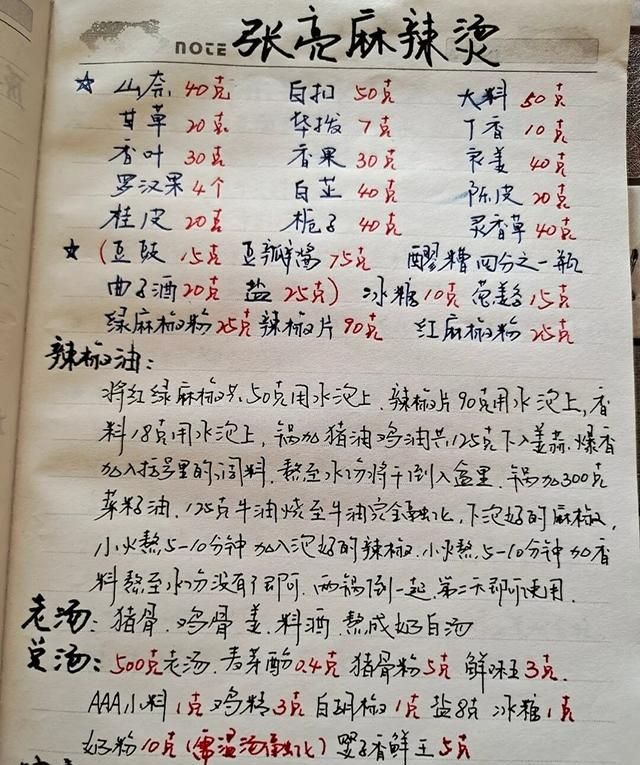 NOTE 张亮麻辣烫
☆ 山奈 40克 白扣 50克 大料 50克
甘草 20克 荜拨 7克 丁香 10克
香叶 30克 香果 30克 良姜 40克
罗汉果 4个 白芷 40克 陈皮 20克
桂皮 20克 栀子 40克 灵香草 40克
★ (豆豉 15克 豆瓣酱 75克 醪糟 四分之一瓶
曲子酒 20克 盐 25克) 冰糖 10克 葱姜 15克
绿麻椒粉 25克 辣椒片 90克 红麻椒粉 25克
辣椒油:
将红绿麻椒共50克用水泡上、辣椒片90克用水泡上,香
料18克用水泡上,锅加猪油鸡油共125克下入姜蒜、爆香
加入括号里的调料、熬至水份将干倒入盆里、锅加300克
菜籽油、125克牛油烧至牛油完全融化,下泡好的麻椒,
小火熬5-10分钟加入泡好的辣椒、小火熬5-10分钟加香
料熬至水份没有了即可、两锅倒一起、第二天即可使用、
老汤: 猪骨、鸡骨 姜、料酒 熬成奶白汤
兑汤: 500克老汤、麦芽酚 0.4克 猪骨粉 5克 鲜味王 3克、
AAA小料 1克 鸡精 3克 白胡椒 1克 盐 8克 冰糖 1克
奶粉 10克 (需温汤融化) 香鲜王 5克